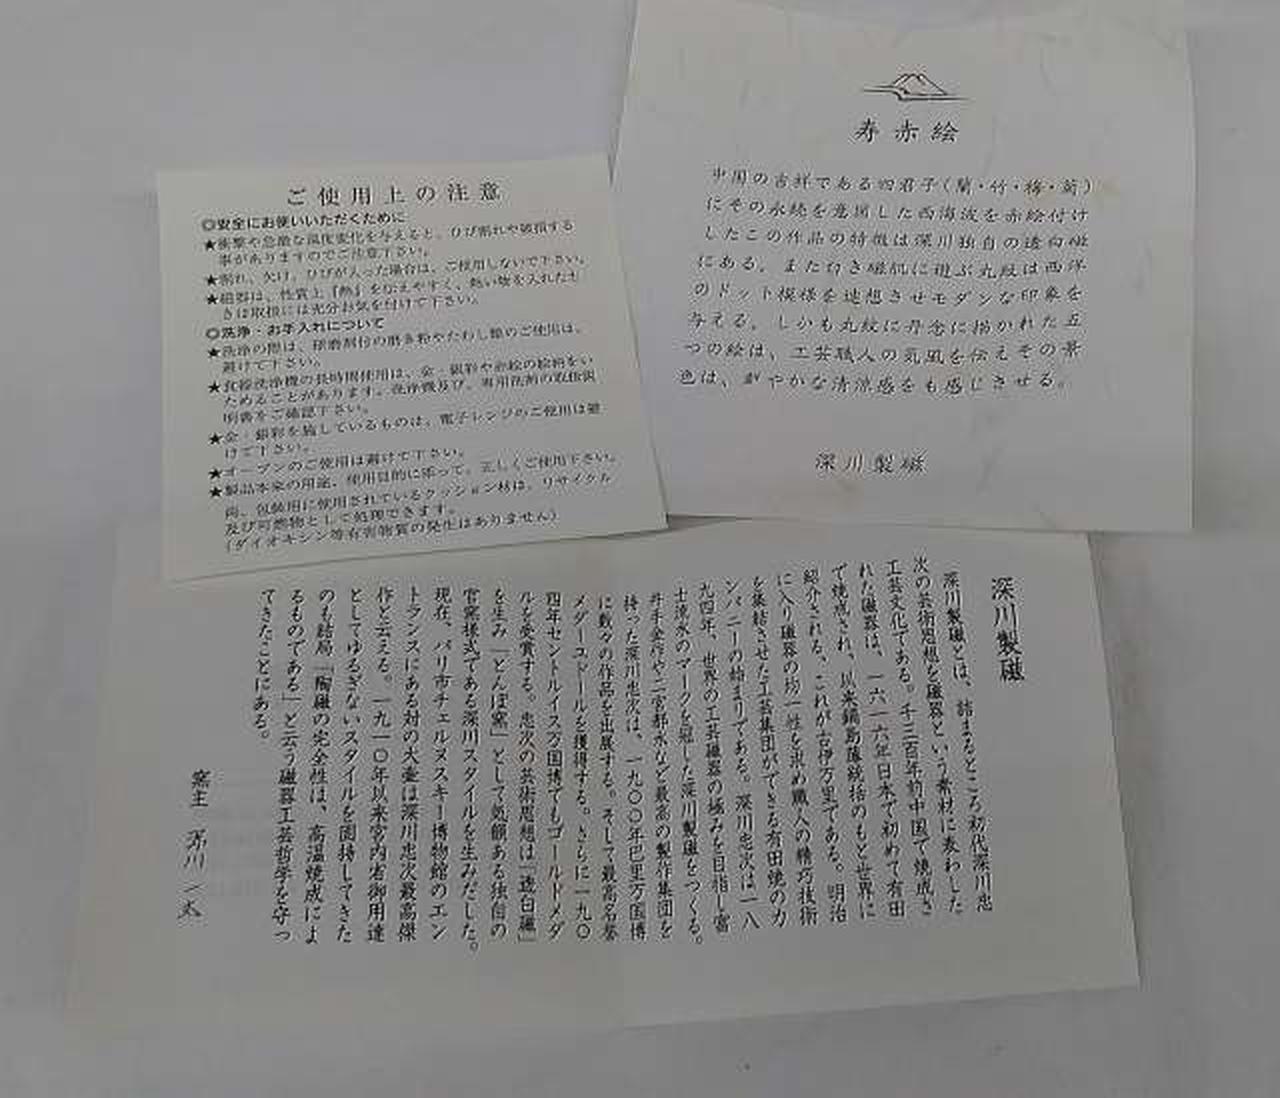 ご使用上の注意
◎安全にお使いいただくために
★衝撃や急激な温度変化を与えると、ひび割れや破損する
事がありますのでご注意下さい。
★割れ、欠け、ひびが入った場合は、ご使用しないで下さい。
★磁器は、性質上『熱』を伝えやすく、熱い物を入れたと
きは取扱には充分お気を付けて下さい。
◎洗浄・お手入れについて
★洗浄の際は、研磨剤付の磨き粉やたわし類のご使用は、
避けて下さい。
★食器洗浄機の長時間使用は、金・銀彩や赤絵の絵柄をい
ためることがあります。洗浄機及び、専用洗剤の取扱説
明書をご確認下さい。
★金・銀彩を施しているものは、電子レンジのご使用は避
けて下さい。
★オーブンのご使用は避けて下さい。
★製品本来の用途、使用目的に添って、正しくご使用下さい。
尚、包装用に使用されているクッション材は、リサイクル
及び可燃物として処理できます。
(ダイオキシン等有害物質の発生はありません)
寿赤絵
中国の吉祥である四君子(蘭・竹・梅・菊)
にその永続を意図した西海波を赤絵付け
したこの作品の特徴は深川独自の透白磁
にある。また白き磁肌に遊ぶ丸紋は西洋
のドット模様を連想させモダンな印象を
与える。しかも丸紋に丹念に描かれた五
つの絵は、工芸職人の気風を伝えその景
色は、鮮やかな清涼感をも感じさせる。
深川製磁
深川製磁
深川製磁とは、詰まるところ初代深川忠
次の芸術思想を磁器という素材に表わした
工芸文化である。千三百年前中国で焼成さ
れた磁器は、一六一六年日本で初めて有田
で焼成され、以来鍋島藩統括のもと世界に
紹介される。これが古伊万里である。明治
に入り磁器の均一性を求め職人の精巧技術
を集結させた工芸集団ができる有田焼のカ
ンパニーの始まりである。深川忠次は一八
九四年、世界の工芸磁器の極みを目指し富
士流水のマークを冠した深川製磁をつくる。
井手金作や二宮都水など最高の製作集団を
持った深川忠次は、一九〇〇年巴里万国博
に数々の作品を出展する。そして最高名誉
メダーユドールを獲得する。さらに一九〇
四年セントルイス万国博でもゴールドメダ
ルを受賞する。忠次の芸術思想は「透白磁」
を生み「とんぼ窯」として気節ある独自の
官窯様式である深川スタイルを生みだした。
現在、パリ市チェルヌスキー博物館のエン
トランスにある対の大壷は深川忠次最高傑
作と云える。一九一〇年以来宮内省御用達
としてゆるぎないスタイルを固持してきた
のも結局「陶磁の完全性は、高温焼成によ
るものである」と云う磁器工芸哲学を守っ
てきたことにある。
窯主 深川一太